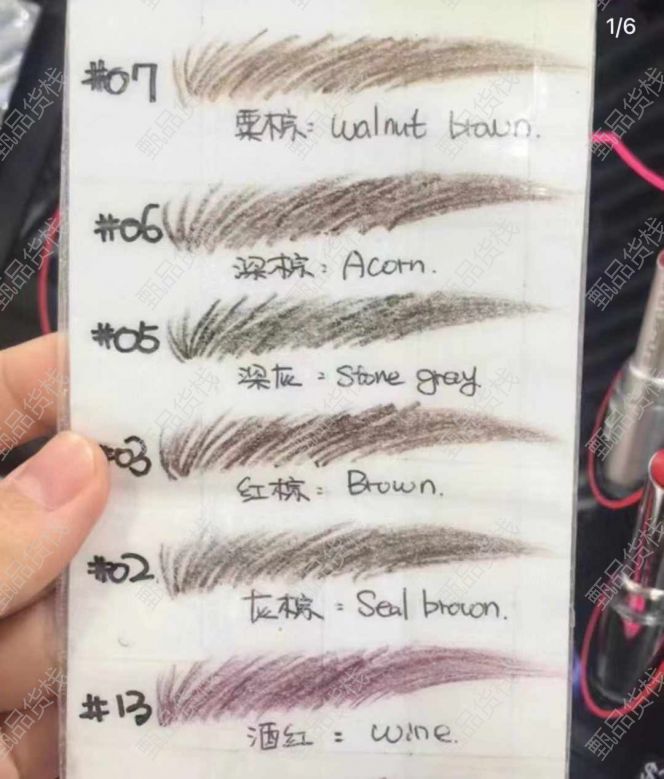 1/6
#07
栗棕：walnut brown.
#06
深棕：Acorn.
#05
深灰：Stone gray.
#03
红棕：Brown.
#02
灰棕：Seal brown.
#13
酒红：wine.
甄品货栈